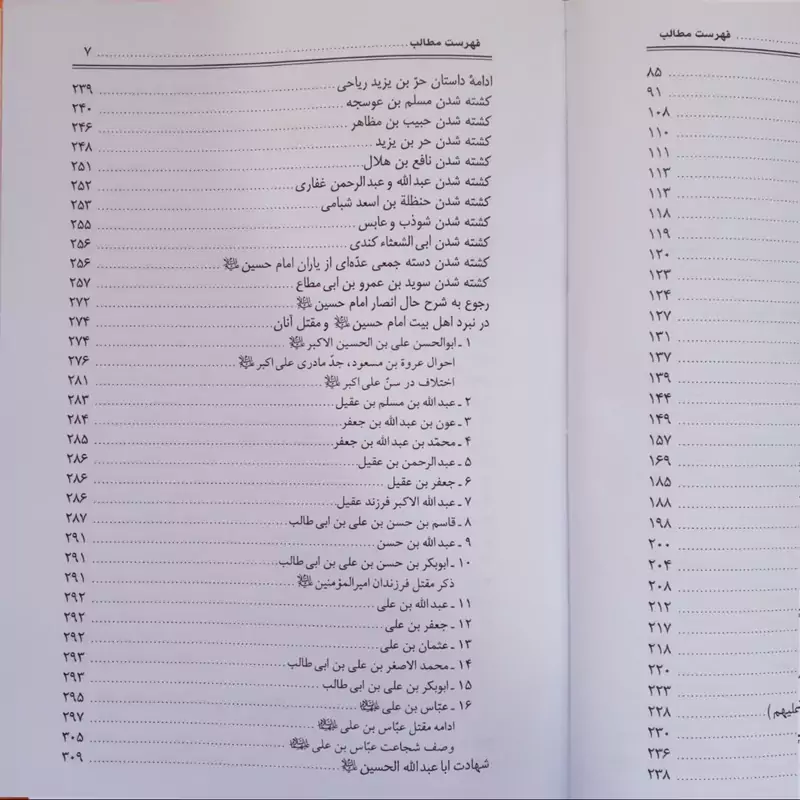 فهرست مطالب ........ ۷
ادامهٔ داستان حرّ بن یزید ریاحی ........ ۲۳۹
کشته شدن مسلم بن عوسجه ........ ۲۴۰
کشته شدن حبیب بن مظاهر ........ ۲۴۶
کشته شدن حر بن یزید ........ ۲۴۸
کشته شدن نافع بن هلال ........ ۲۵۱
کشته شدن عبدالله و عبدالرحمن غفاری ........ ۲۵۲
کشته شدن حنظلة بن اسعد شبامی ........ ۲۵۳
کشته شدن شوذب و عابس ........ ۲۵۵
کشته شدن ابی الشعثاء کندی ........ ۲۵۶
کشته شدن دسته جمعی عدّه‌ای از یاران امام حسین ........ ۲۵۶
کشته شدن سوید بن عمرو بن ابی مطاع ........ ۲۵۷
رجوع به شرح حال انصار امام حسین ........ ۲۷۲
در نبرد اهل بیت امام حسین و مقتل آنان ........ ۲۷۴
۱ ـ ابوالحسن علی بن الحسین الاکبر ........ ۲۷۴
احوال عروة بن مسعود، جدّ مادری علی اکبر ........ ۲۷۶
اختلاف در سنّ علی اکبر ........ ۲۸۱
۲ ـ عبدالله بن مسلم بن عقیل ........ ۲۸۳
۳ ـ عون بن عبدالله بن جعفر ........ ۲۸۴
۴ ـ محمّد بن عبدالله بن جعفر ........ ۲۸۵
۵ ـ عبدالرحمن بن عقیل ........ ۲۸۶
۶ ـ جعفر بن عقیل ........ ۲۸۶
۷ ـ عبدالله الاکبر فرزند عقیل ........ ۲۸۶
۸ ـ قاسم بن حسن بن علی بن ابی طالب ........ ۲۸۷
۹ ـ عبدالله بن حسن ........ ۲۹۱
۱۰ ـ ابوبکر بن حسن بن علی بن ابی طالب ........ ۲۹۱
ذکر مقتل فرزندان امیرالمؤمنین ........ ۲۹۱
۱۱ ـ عبدالله بن علی ........ ۲۹۲
۱۲ ـ جعفر بن علی ........ ۲۹۲
۱۳ ـ عثمان بن علی ........ ۲۹۲
۱۴ ـ محمد الاصغر بن علی بن ابی طالب ........ ۲۹۳
۱۵ ـ ابوبکر بن علی بن ابی طالب ........ ۲۹۳
۱۶ ـ عبّاس بن علی ........ ۲۹۵
ادامه مقتل عبّاس بن علی ........ ۲۹۷
وصف شجاعت عبّاس بن علی ........ ۳۰۵
شهادت ابا عبدالله الحسین ........ ۳۰۹
فهرست مطالب ........
۸۵
۹۱
۱۰۸
۱۱۰
۱۱۱
۱۱۳
۱۱۳
۱۱۸
۱۱۹
۱۲۰
۱۲۳
۱۲۴
۱۲۷
۱۳۱
۱۳۷
۱۳۹
۱۴۴
۱۴۹
۱۵۷
۱۶۹
۱۸۵
۱۸۸
۱۹۸
۲۰۰
۲۰۴
۲۰۸
۲۱۲
۲۱۷
۲۱۸
۲۲۰
۲۲۳
علیهم) ........ ۲۲۸
۲۳۰
۲۳۶
۲۳۸